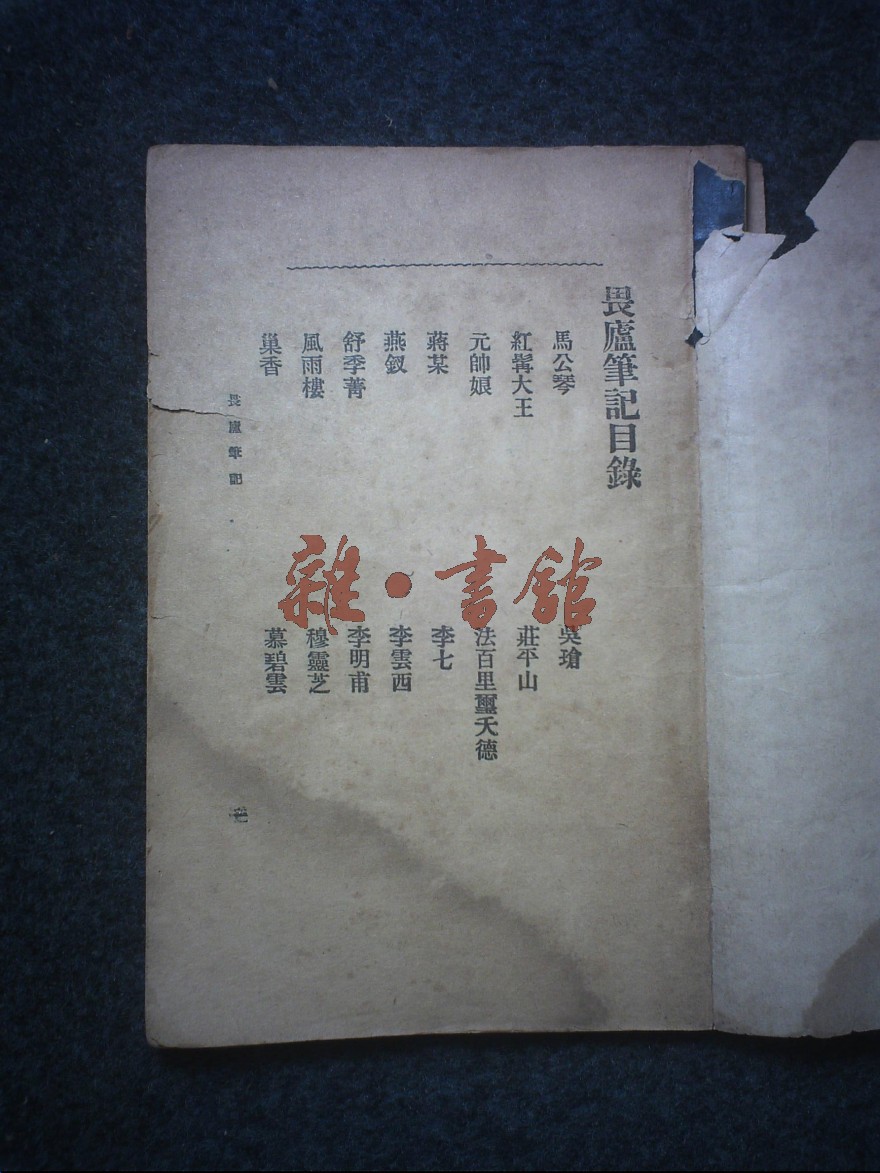 畏廬筆記目錄
馬公琴
吳瑲
紅髯大王
莊平山
元帥娘
法百里璽天德
蔣某
李七
燕釵
李雲西
舒季菁
李明甫
風雨樓
穆靈芝
巢香
慕碧雲
畏廬筆記
雜·書館